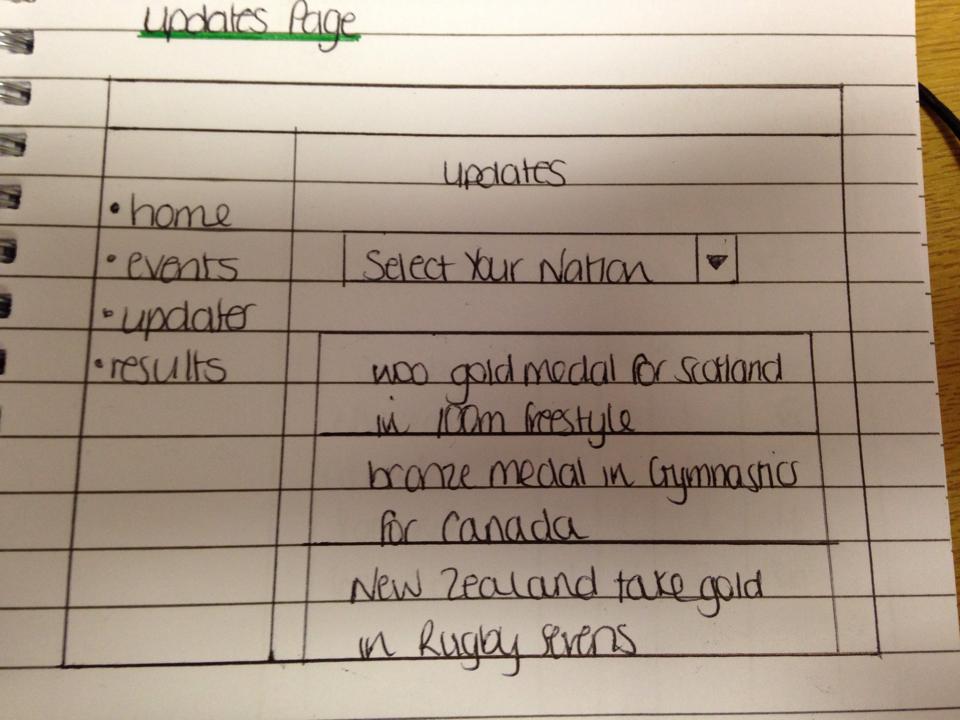 Updates Page
updates
• home
• events
• updates
• results
Select Your Nation
woo gold medal for scotland
in 100m freestyle
bronze medal in Gymnastics
for Canada
New Zealand take gold
in Rugby sevens